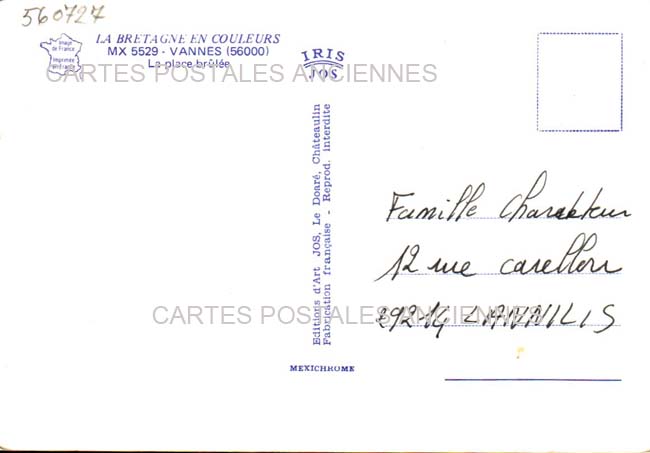 560727
LA BRETAGNE EN COULEURS
MX 5529 - VANNES (56000)
La place brûlée
Image
de France
Imprimée
en France
IRIS
JOS
CARTES POSTALES ANCIENNES
Editions d'Art JOS, Le Doaré, Châteaulin
Fabrication française - Reprod. interdite
Famille
12 rue
29214 LANNILIS
CARTES POSTALES ANCIENNES
MEXICHROME